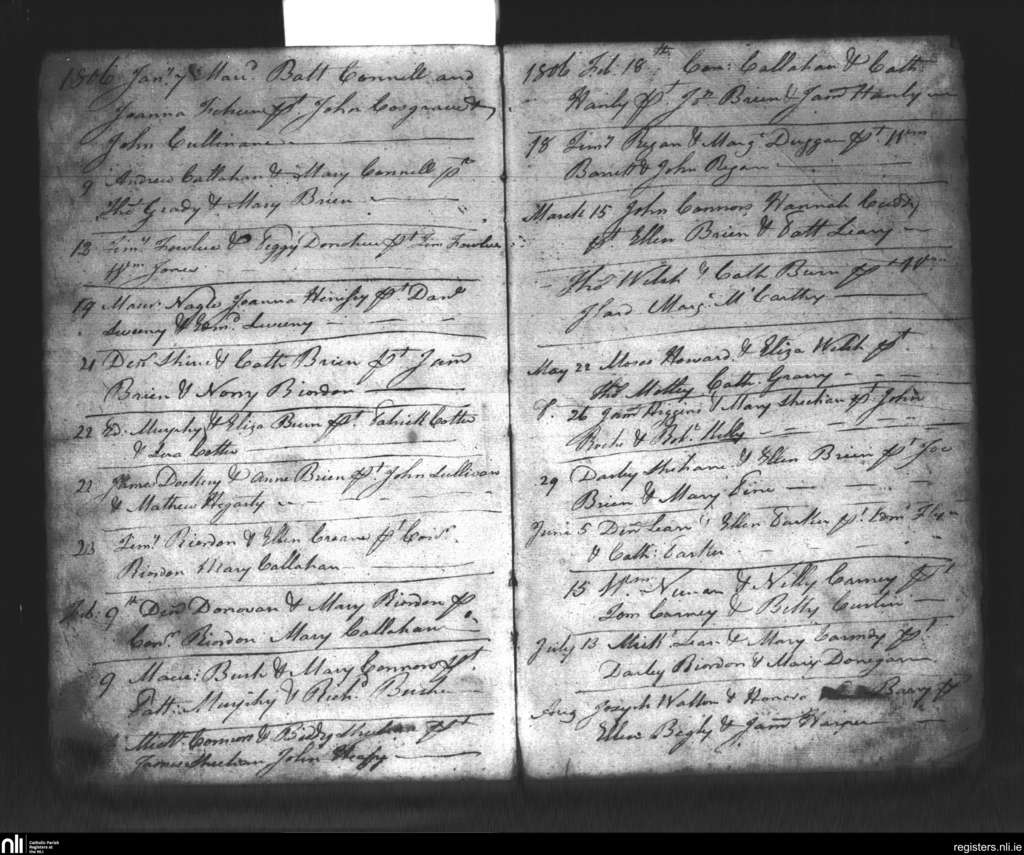 1806 Jany 7 Mard. Batt Connell and
Joanna pt. John Cosgrave &
John Cullinane
9 Andrew Callahan & Mary Connell pt
Thos Grady & Mary Brien
12 Timy Fowlue & Peggy Donohue pt Tim Fowlue
Wm Jones
19 Maur. Nagle Joanna Henesy pt Danl
Sweeny & Edmd Sweeny
21 Denl Shine & Cath Brien pt Jam
Brien & Norry Riordon
22 Ed. Murphy & Eliza Burn pt Patrick Cotter
& Cotter
22 James Dockery & Anne Brien pt John Sullivan
& Mathew Hegarty
23 Timy Riordon & Ellen Creane pt Cors.
Riordon Mary Callahan
Feb: 9th Denl Donovan & Mary Riordon pt
Cors. Riordon Mary Callahan
9 Maur: Burk & Mary Connors pt
Patt: Murphy & Richd Burke
Michl. Connors & Biddy Sheehan pt
James Sheehan John Heafy
1806 Feb. 18th Con: Callahan & Cath
Hanly pt Jon Brien & Jams Hanly
18 Timy Regan & Marg Duggan pt Wm
Barrett & John Regan
March 15 John Connors Hannah Cuddy
pt Ellen Brien & Patt Leary
Thos Welsh & Cath Burn pt Wm
Marg: McCarthy
May 22 Moses Howard & Eliza Welsh pt
Thos Mottey Cath: Grany
26 Jams Higgins & Mary Sheehan pt John
Roche & Robt. Kelly
29 Darby Shehane & Ellen Brien pt Joe
Brien & Mary
June 5 Denl & Ellen Parker pt Edmd
& Cath: Parker
15 Wm Nunan & Nelly Carney pt
Tom Carney & Betty Curtin
July 13 Michl & Mary Carmdy pt
Darby Riordon & Mary Donegan
Aug Joseph Walton & Honora Barry pt
Ellen Begly & Jams Harper
nli
Catholic Parish
Registers at
the NLI
registers.nli.ie